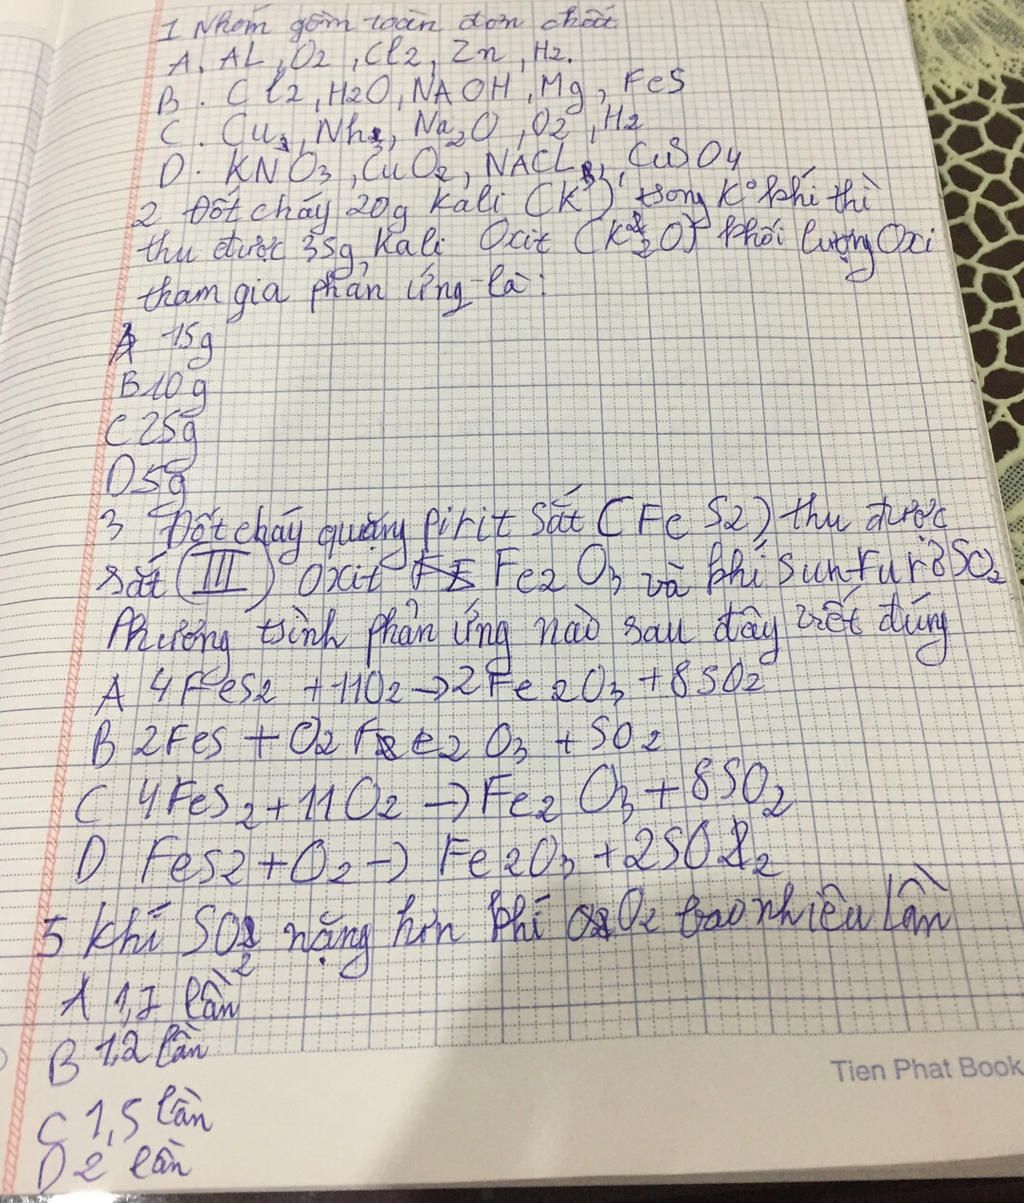 1 Nhóm gồm toàn đơn chất
A. AL, O2, Cl2, Zn, H2.
B. Cl2, H2O, NAOH, Mg, FeS
C. Cu, Nh3, Na2O, O2, H2
D. KNO3, CuO2, NACL, CuSO4
2 Đốt cháy 20g Kali (K) trong K° khí thì
thu được 35g Kali Oxit (K2O) khối lượng Oxi
tham gia phản ứng là:
A 15g
B 10g
C 25g
D 5g
3 Đốt cháy quặng pirit sắt (FeS2) thu được
sắt (III) Oxit Fe2O3 và khí sunfurơ SO2
Phương trình phản ứng nào sau đây viết đúng
A 4FeS2 + 11O2 → 2Fe2O3 + 8SO2
B 2FeS + O2 Fe2O3 + SO2
C 4FeS2 + 11O2 → Fe2O3 + 8SO2
D FeS2 + O2 → Fe2O3 + 2SO2
5 khí SO2 nặng hơn khí O2 bao nhiêu lần
A 1,7 lần
B 1,2 lần
C 1,5 lần
D 2 lần
Tien Phat Book